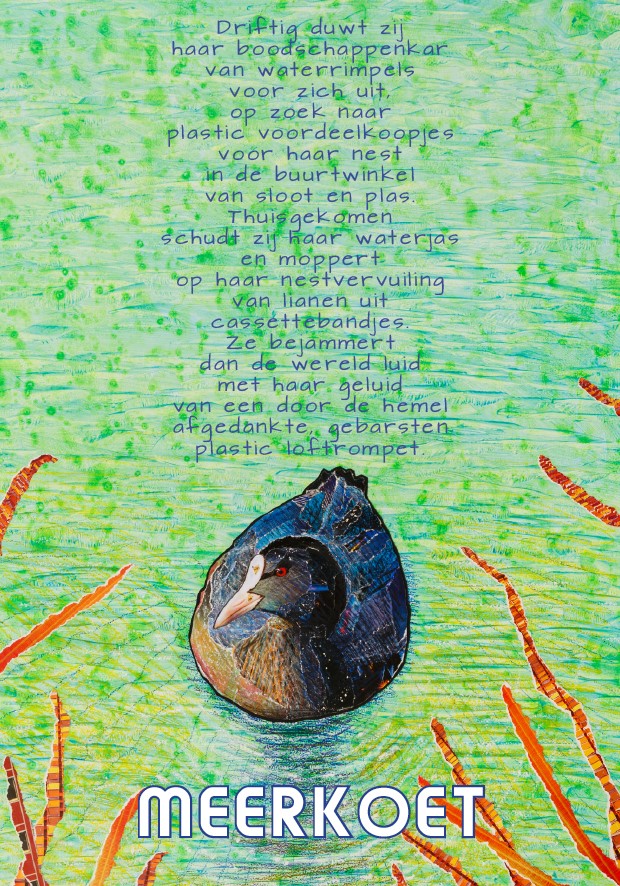 Driftig duwt zij
haar boodschappenkar
van waterrimpels
voor zich uit,
op zoek naar
plastic voordeelkoopjes
voor haar nest
in de buurtwinkel
van sloot en plas.
Thuisgekomen
schudt zij haar waterjas
en moppert
op haar nestvervuiling
van lianen uit
cassettebandjes.
Ze bejammert
dan de wereld luid
met haar geluid
van een door de hemel
afgedankte, gebarsten
plastic loftrompet.
MEERKOET